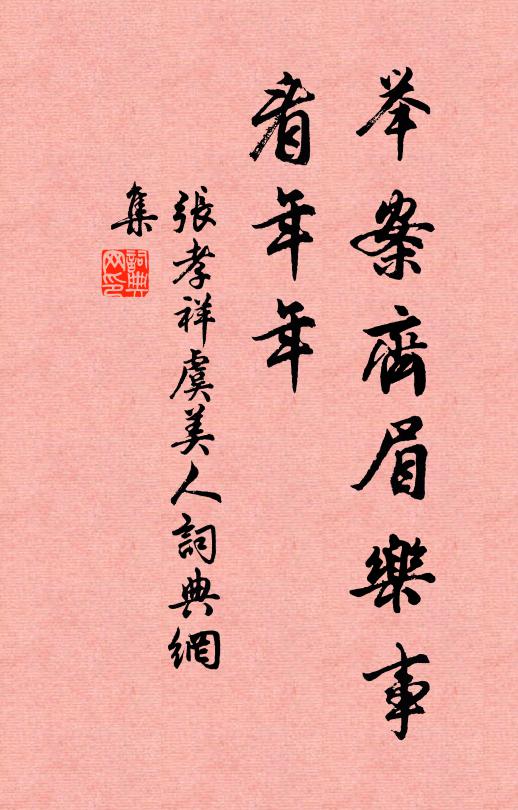 举案齊眉樂事
看年年
張孝祥虞美人詞典網
集
詞典
网印